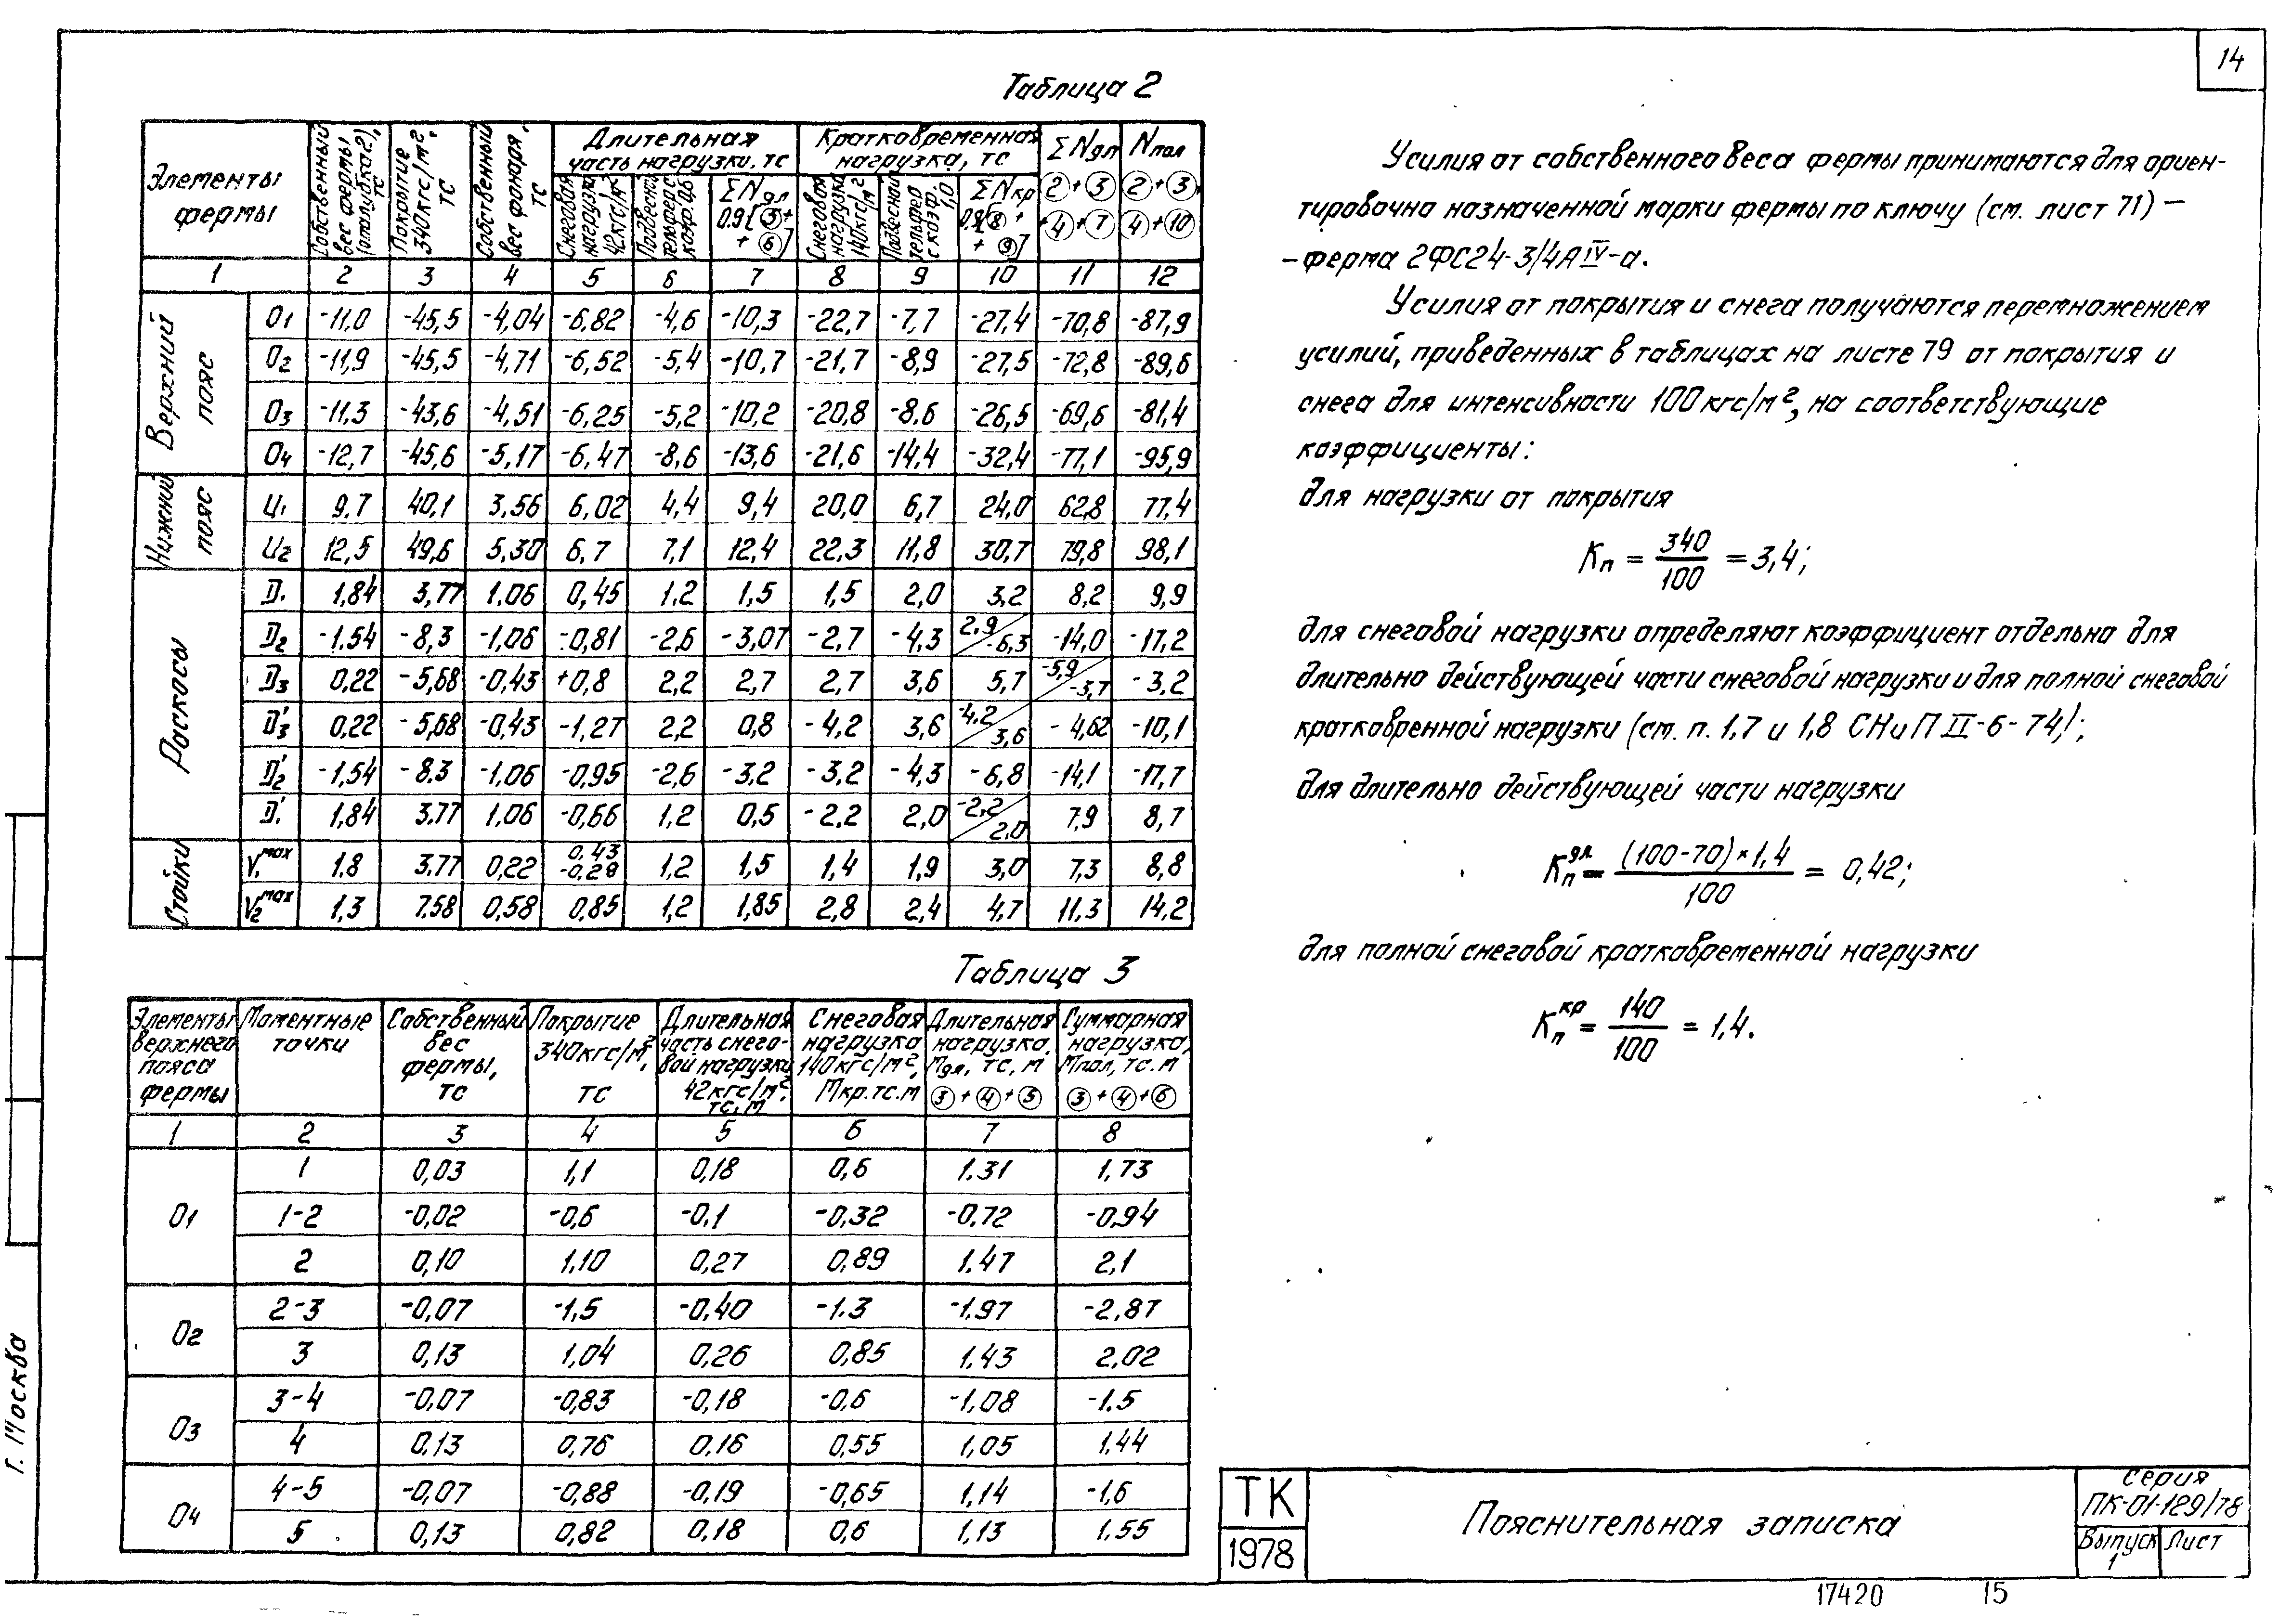 14
Таблица 2
Элементы фермы | Собственный вес фермы (опалубка 2), тс | Покрытие 340 кгс/м², тс | Собственный вес фонаря, тс | Длительная часть нагрузки, тс | Кратковременная нагрузка, тс | ΣNдл ②+③+④+⑦ | Nпол ②+③+④+⑩
Снеговая нагрузка 42 кгс/м² | ΣNдл 0.9[⑤+⑥] | Снеговая нагрузка 140 кгс/м² | ΣNкр 0.9[⑧+⑨]
1 2 3 4 5 6 7 8 9 10 11 12
Верхний пояс
О1 -11,0 -45,5 -4,04 -6,82 -4,6 -10,3 -22,7 -7,7 -27,4 -70,8 -87,9
О2 -11,9 -45,5 -4,71 -6,52 -5,4 -10,7 -21,7 -8,9 -27,5 -72,8 -89,6
О3 -11,3 -43,6 -4,51 -6,25 -5,2 -10,2 -20,8 -8.6 -26,5 -69,6 -81,4
О4 -12,7 -45,6 -5,17 -6,47 -8,6 -13,6 -21,6 -14,4 -32,4 -77,1 -95,9
Нижний пояс
U1 9.7 40,1 3.56 6,02 4,4 9,4 20,0 6,7 24,0 62,8 77,4
U2 12,5 49,6 5,30 6,7 7,1 12,4 22,3 11,8 30,7 79,8 98,1
Раскосы
D1 1,84 3,77 1.06 0,45 1,2 1,5 1,5 2,0 3,2 8,2 9,9
D2 -1.54 -8,3 -1,06 -0,81 -2,6 -3,07 -2,7 -4,3 2,9/-6,3 -14,0 -17,2
D3 0,22 -5,68 -0,43 +0,8 2,2 2,7 2,7 3,6 5,7 -5,9/-3,7 -3,2
D3' 0,22 -5,68 -0,43 -1,27 2,2 0,8 -4,2 3,6 -4,2/3,6 -4,62 -10,1
D2' -1,54 -8.3 -1.06 -0,95 -2,6 -3,2 -3,2 -4,3 -6,8 -14,1 -17,7
D1' 1,84 3.77 1,06 -0,66 1,2 0,5 -2.2 2,0 -2,2/2,0 7,9 8,7
Стойки
V1 max 1.8 3.77 0,22 0,43 -0,28 1,2 1,5 1,4 1,9 3,0 7,3 8,8
V2 max 1,3 7.58 0,58 0,85 1,2 1,85 2,8 2,4 4,7 11,3 14,2
Таблица 3
Элементы верхнего пояса фермы | Моментные точки | Собственный вес фермы, тс | Покрытие 340 кгс/м², тс | Длительная часть снеговой нагрузки 42 кгс/м², тс, м | Снеговая нагрузка 140 кгс/м², Мкр. тс. м | Длительная нагрузка, Мдл, тс, м ③+④+⑤ | Суммарная нагрузка, Мпол, тс. м ③+④+⑥
1 2 3 4 5 6 7 8
О1
1 0,03 1,1 0,18 0,6 1.31 1,73
1-2 -0,02 -0,6 -0,1 -0,32 -0,72 -0,94
2 0,10 1,10 0,27 0,89 1.47 2,1
О2
2-3 -0,07 -1,5 -0,40 -1.3 -1.97 -2,87
3 0,13 1,04 0,26 0,85 1.43 2,02
О3
3-4 -0,07 -0,83 -0,18 -0,6 -1,08 -1.5
4 0,13 0,76 0,16 0,55 1,05 1,44
О4
4-5 -0,07 -0,88 -0,19 -0,65 1,14 -1,6
5 0,13 0,82 0,18 0,6 1,13 1,55
Усилия от собственного веса фермы принимаются для ориен-
тировочно назначенной марки фермы по ключу (см. лист 71) –
– ферма 2ФС24-3/4АIV-а.
Усилия от покрытия и снега получаются перемножением
усилий, приведенных в таблицах на листе 79 от покрытия и
снега для интенсивности 100 кгс/м², на соответствующие
коэффициенты:
для нагрузки от покрытия
Кп = 340/100 = 3,4;
для снеговой нагрузки определяют коэффициент отдельно для
длительно действующей части снеговой нагрузки и для полной снеговой
кратковренной нагрузки (см. п. 1,7 и 1,8 СНиП II-6-74);
для длительно действующей части нагрузки
Кп дл = (100-70)×1,4/100 = 0,42;
для полной снеговой кратковременной нагрузки
Кп кр = 140/100 = 1,4.
ТК
1978
Пояснительная записка
Серия
ПК-01-129/78
Выпуск 1
Лист
г. Москва
17420 15